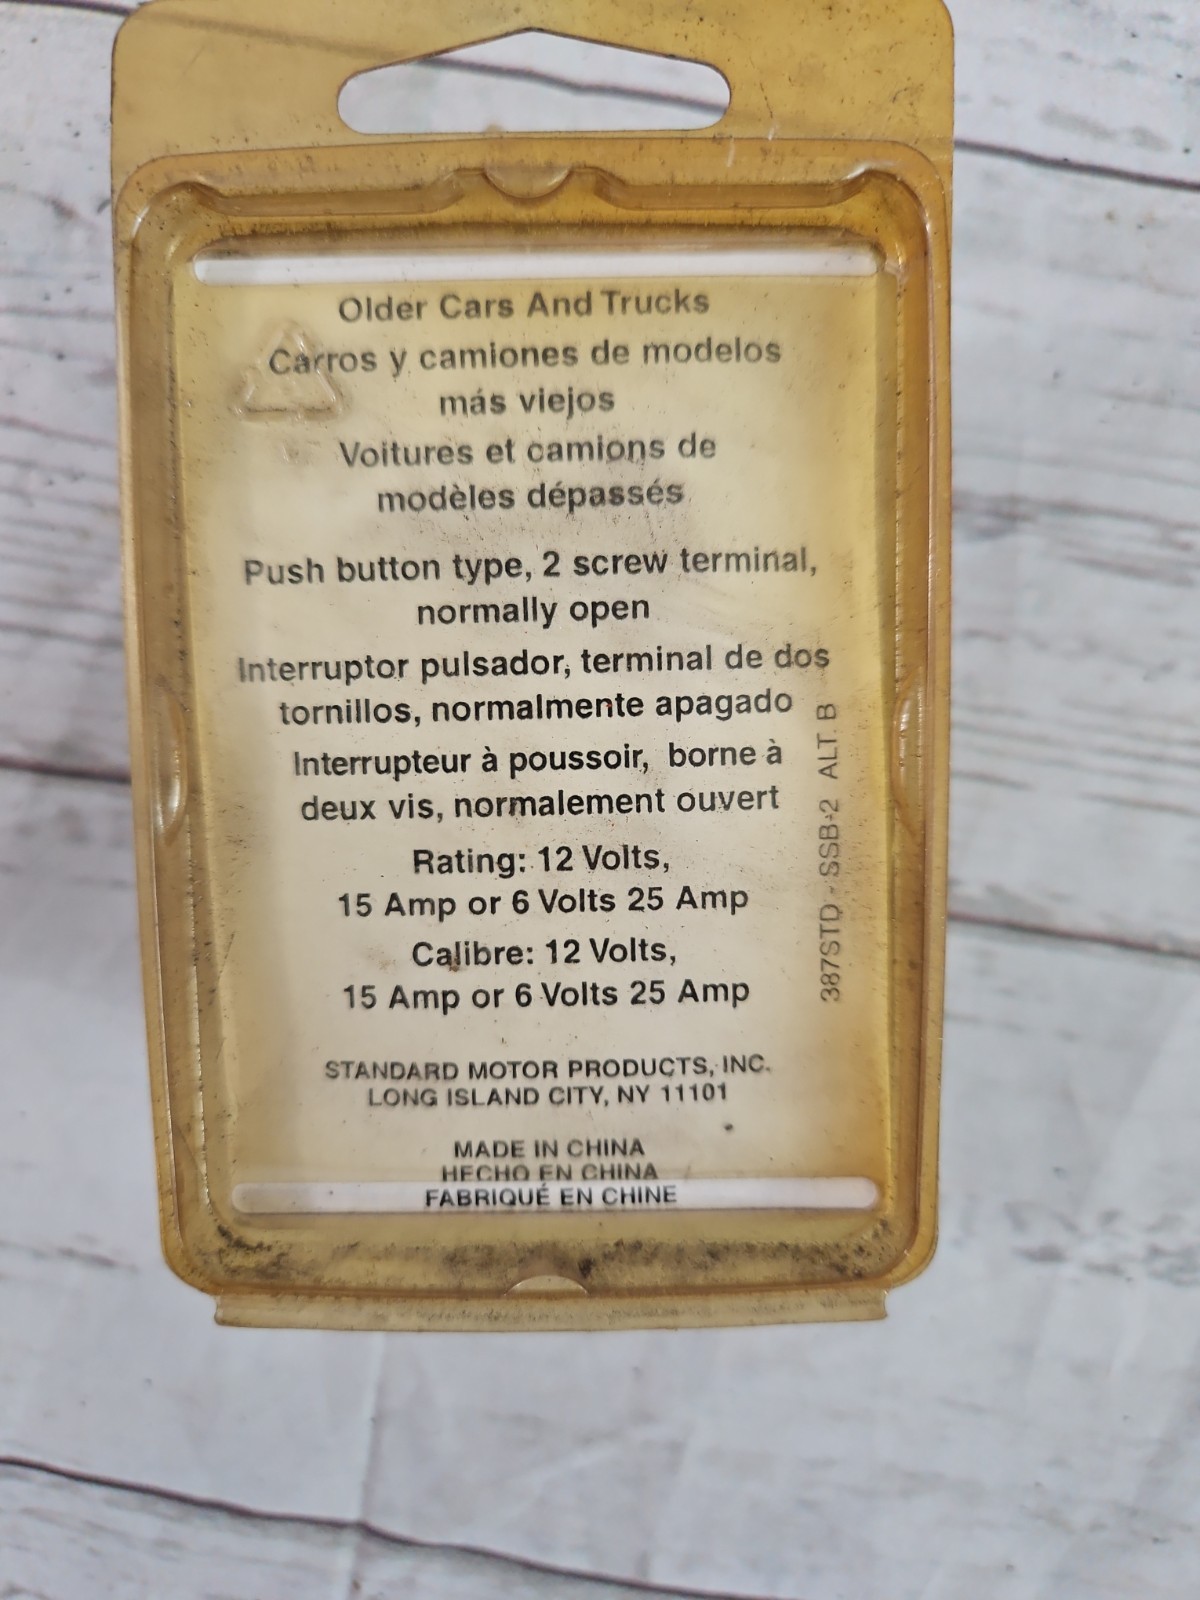 Older Cars And Trucks
Carros y camiones de modelos
más viejos
Voitures et camions de
modèles dépassés
Push button type, 2 screw terminal,
normally open
Interruptor pulsador, terminal de dos
tornillos, normalmente apagado
Interrupteur à poussoir, borne à
deux vis, normalement ouvert
Rating: 12 Volts,
15 Amp or 6 Volts 25 Amp
Calibre: 12 Volts,
15 Amp or 6 Volts 25 Amp
STANDARD MOTOR PRODUCTS, INC.
LONG ISLAND CITY, NY 11101
MADE IN CHINA
HECHO EN CHINA
FABRIQUÉ EN CHINE
387STD - SSB-2 ALT. B